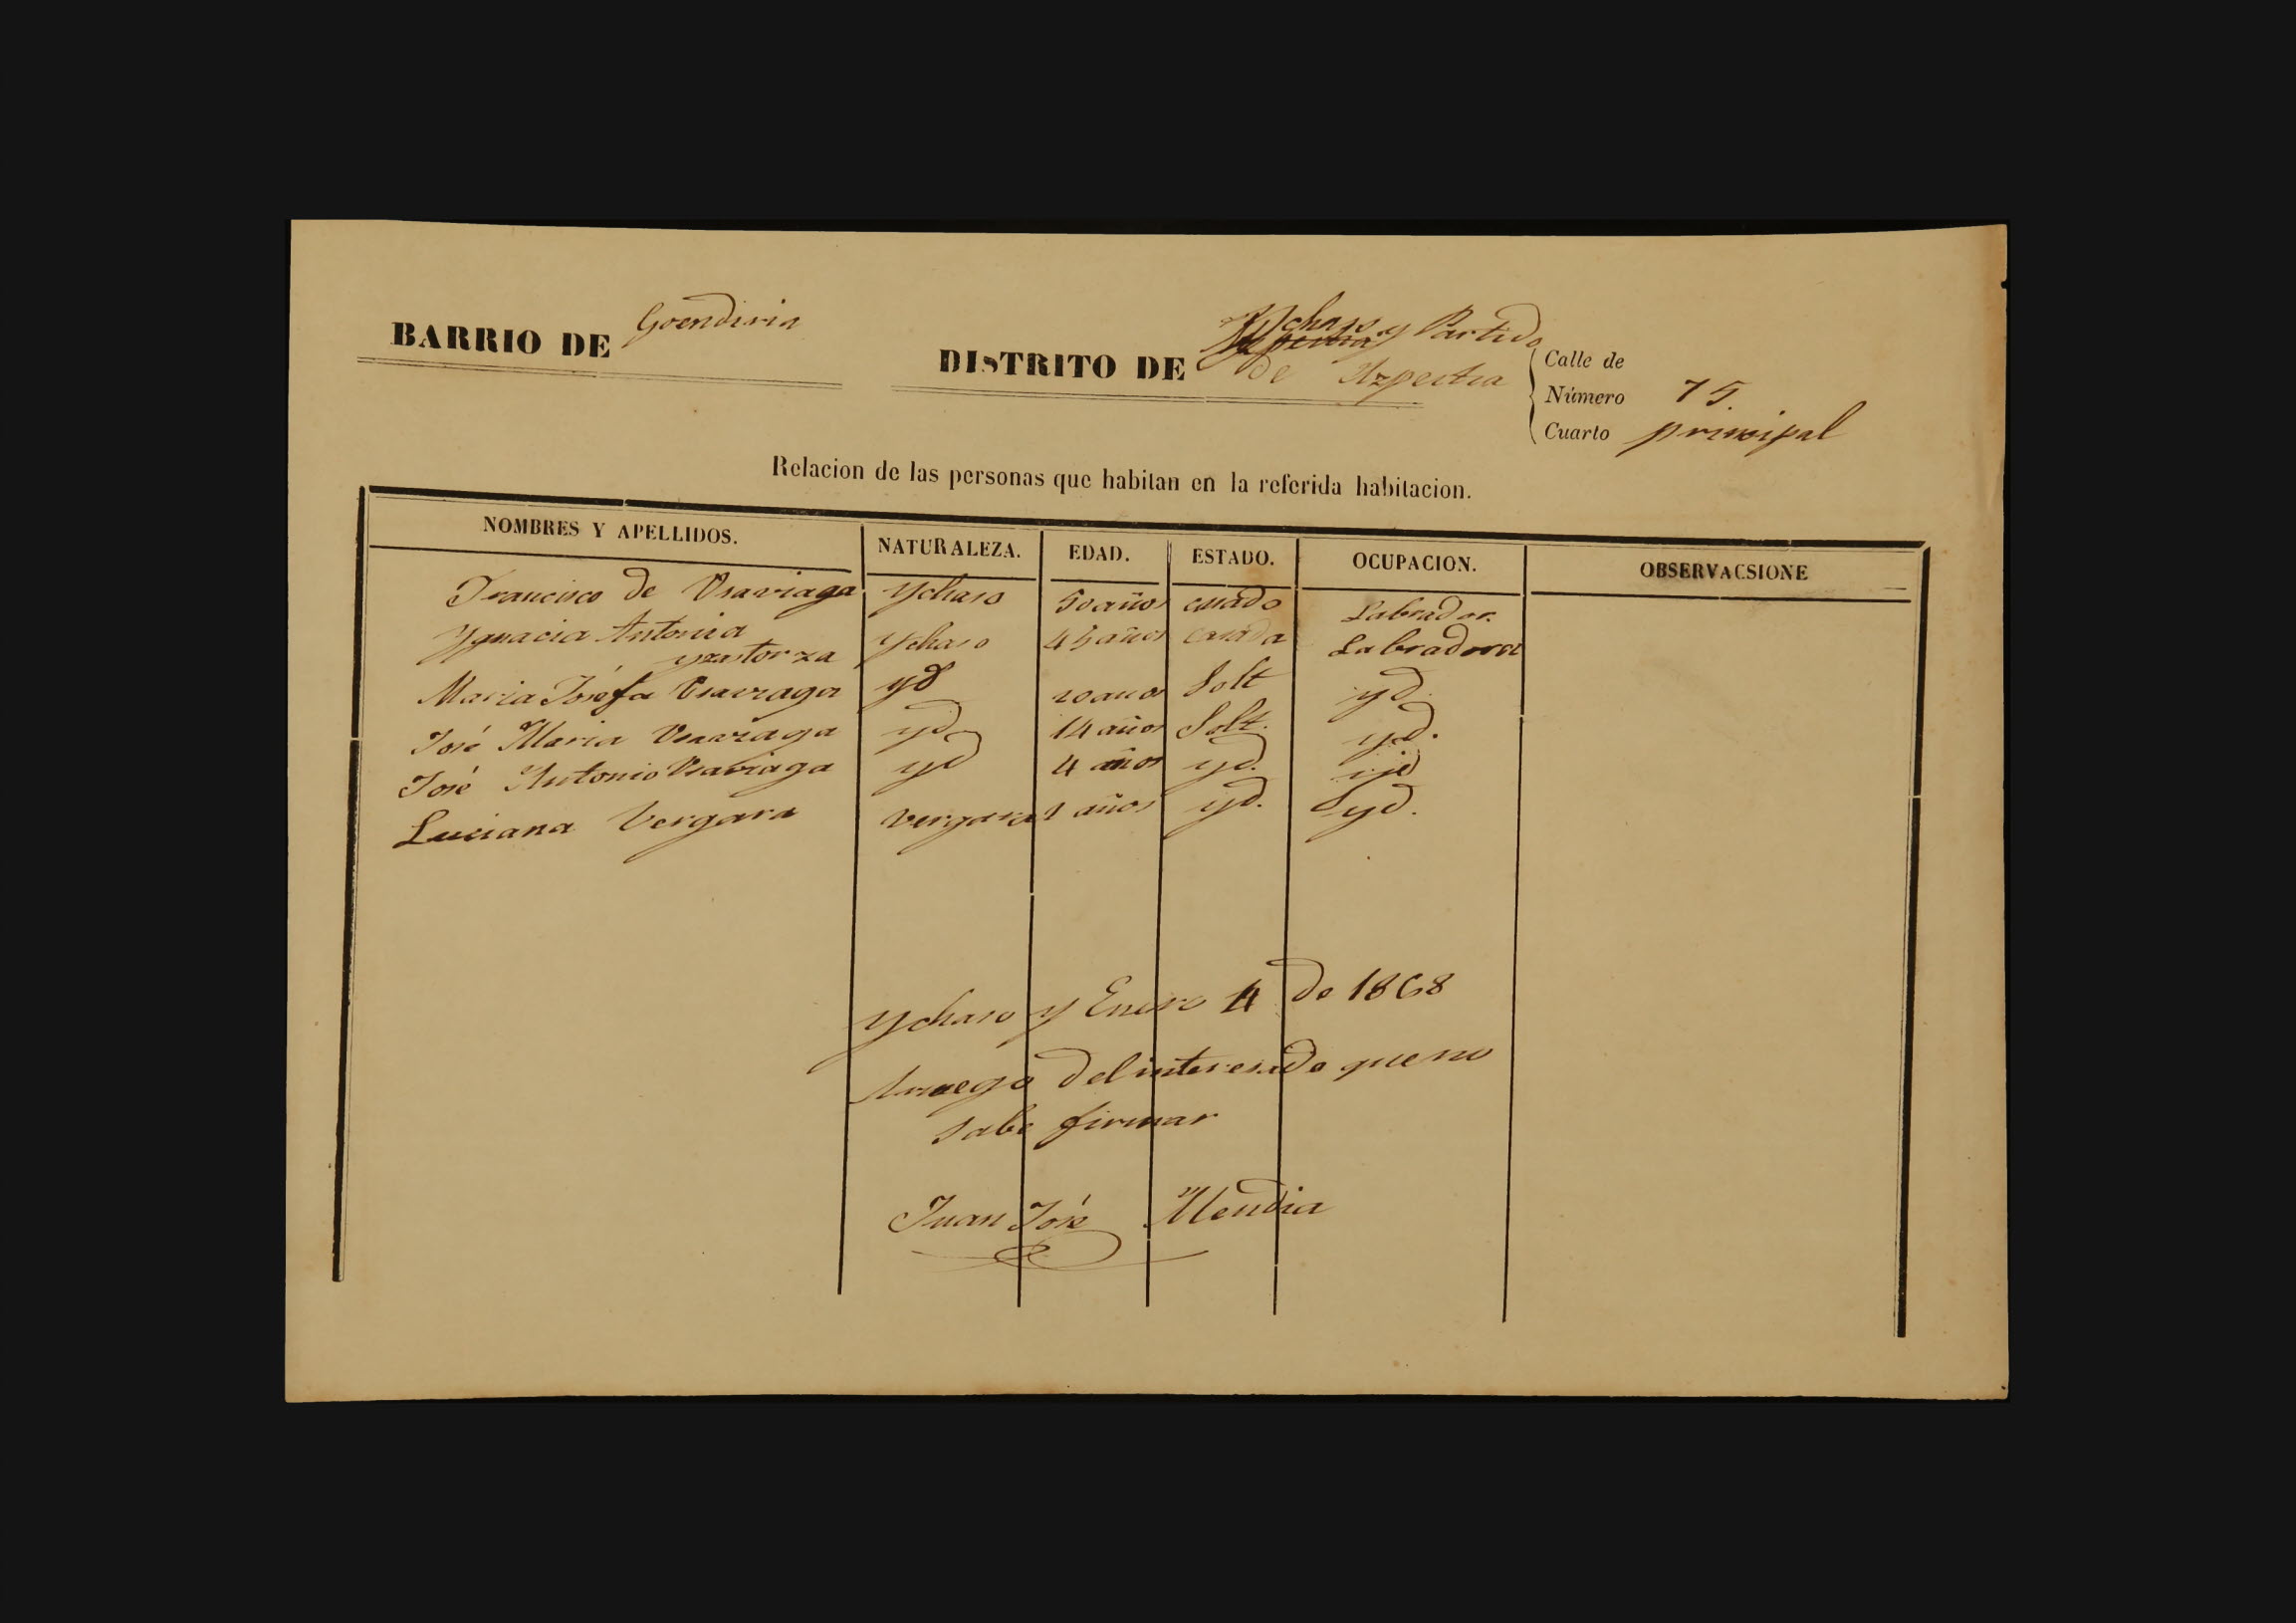 BARRIO DE Goendiria
DISTRITO DE Ychaso y Partido
de Azpeitia
Calle de
Número 75.
Cuarto principal
Relacion de las personas que habitan en la referida habitacion.
NOMBRES Y APELLIDOS. NATURALEZA. EDAD. ESTADO. OCUPACION. OBSERVACSIONE
Francisco de Usaviaga Ychaso 50 años casado Labrador.
Ygnacia Antonia Ychaso 45 años casada Labradora
yzastorza
Maria Josefa Usaviaga yd 20 años Solt yd.
José Maria Usaviaga yd 14 años Solt. yd.
José Antonio Usaviaga yd 4 años yd. yd
Luciana Vergara Vergara años yd. yd.
Ychaso y Enero 4 de 1868
Aruego del interesado que no
sabe firmar
Juan José Mendia